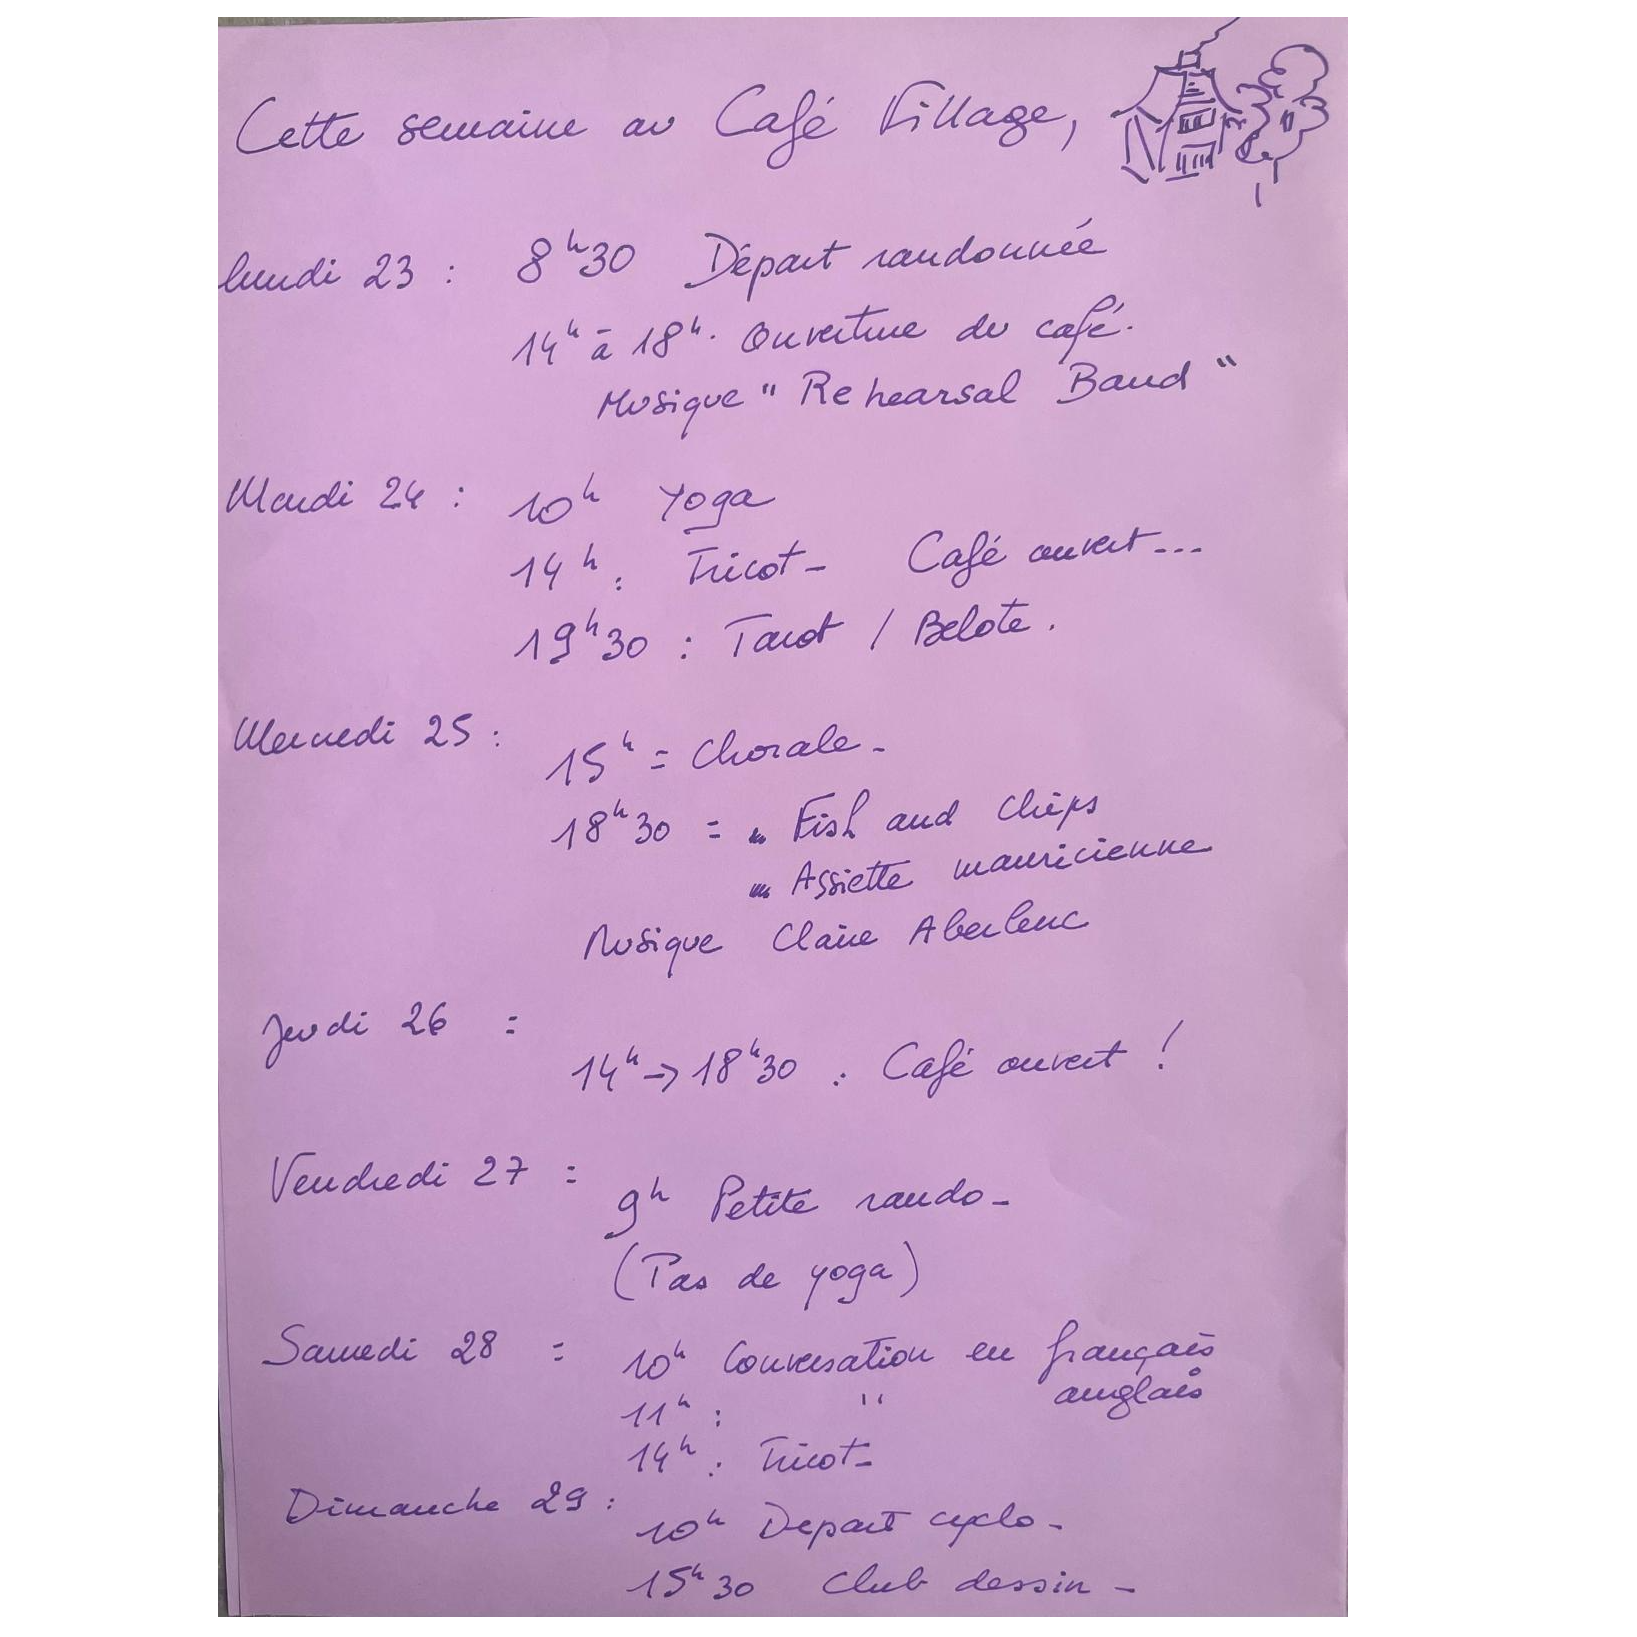 Cette semaine au Café Village,
lundi 23 : 8h30 Départ randonnée
14h à 18h. Ouverture du café.
Musique "Rehearsal Band"
Mardi 24 : 10h Yoga
14h : Tricot - Café ouvert...
19h30 : Tarot / Belote.
Mercredi 25 :
15h = Chorale -
18h30 = - Fish and Chips
- Assiette mauricienne
Musique Claire Aberlenc
Jeudi 26 =
14h → 18h30 : Café ouvert !
Vendredi 27 =
9h Petite rando -
(Pas de yoga)
Samedi 28 = 10h Conversation en français
11h : " anglais
14h : Tricot -
Dimanche 29 :
10h Depart cyclo -
15h30 Club dessin -